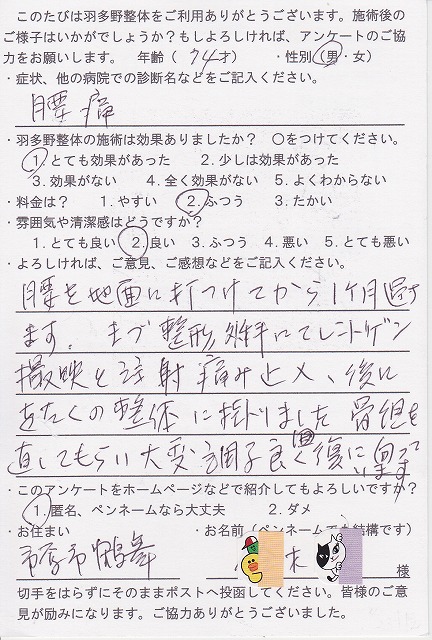 このたびは羽多野整体をご利用ありがとうございます。施術後の
ご様子はいかがでしょうか？もしよろしければ、アンケートのご協
力をお願いします。 年齢（ 74才） ・性別（男・女）
・症状、他の病院での診断名などをご記入ください。
腰痛
・羽多野整体の施術は効果ありましたか？ 〇をつけてください。
1. とても効果があった 2. 少しは効果があった
3. 効果がない 4. 全く効果がない 5. よくわからない
・料金は？ 1. やすい 2. ふつう 3. たかい
・雰囲気や清潔感はどうですか？
1. とても良い 2. 良い 3. ふつう 4. 悪い 5. とても悪い
・よろしければ、ご意見、ご感想などをご記入ください。
腰を地面に打つけてから1ヶ月過ぎ
ます。 まづ整形外科にてレントゲン
撮映と注射痛み止メ、後に
おたくの整体に掛りました 骨組を
直してもらい大変調子良く回復に
・このアンケートをホームページなどで紹介してもよろしいですか？
1. 匿名、ペンネームなら大丈夫 2. ダメ
・お住まい ・お名前（ペンネームでも結構です）
市原市鶴舞 木 様
切手をはらずにそのままポストへ投函してください。皆様のご意
見が励みになります。ご協力ありがとうございました。